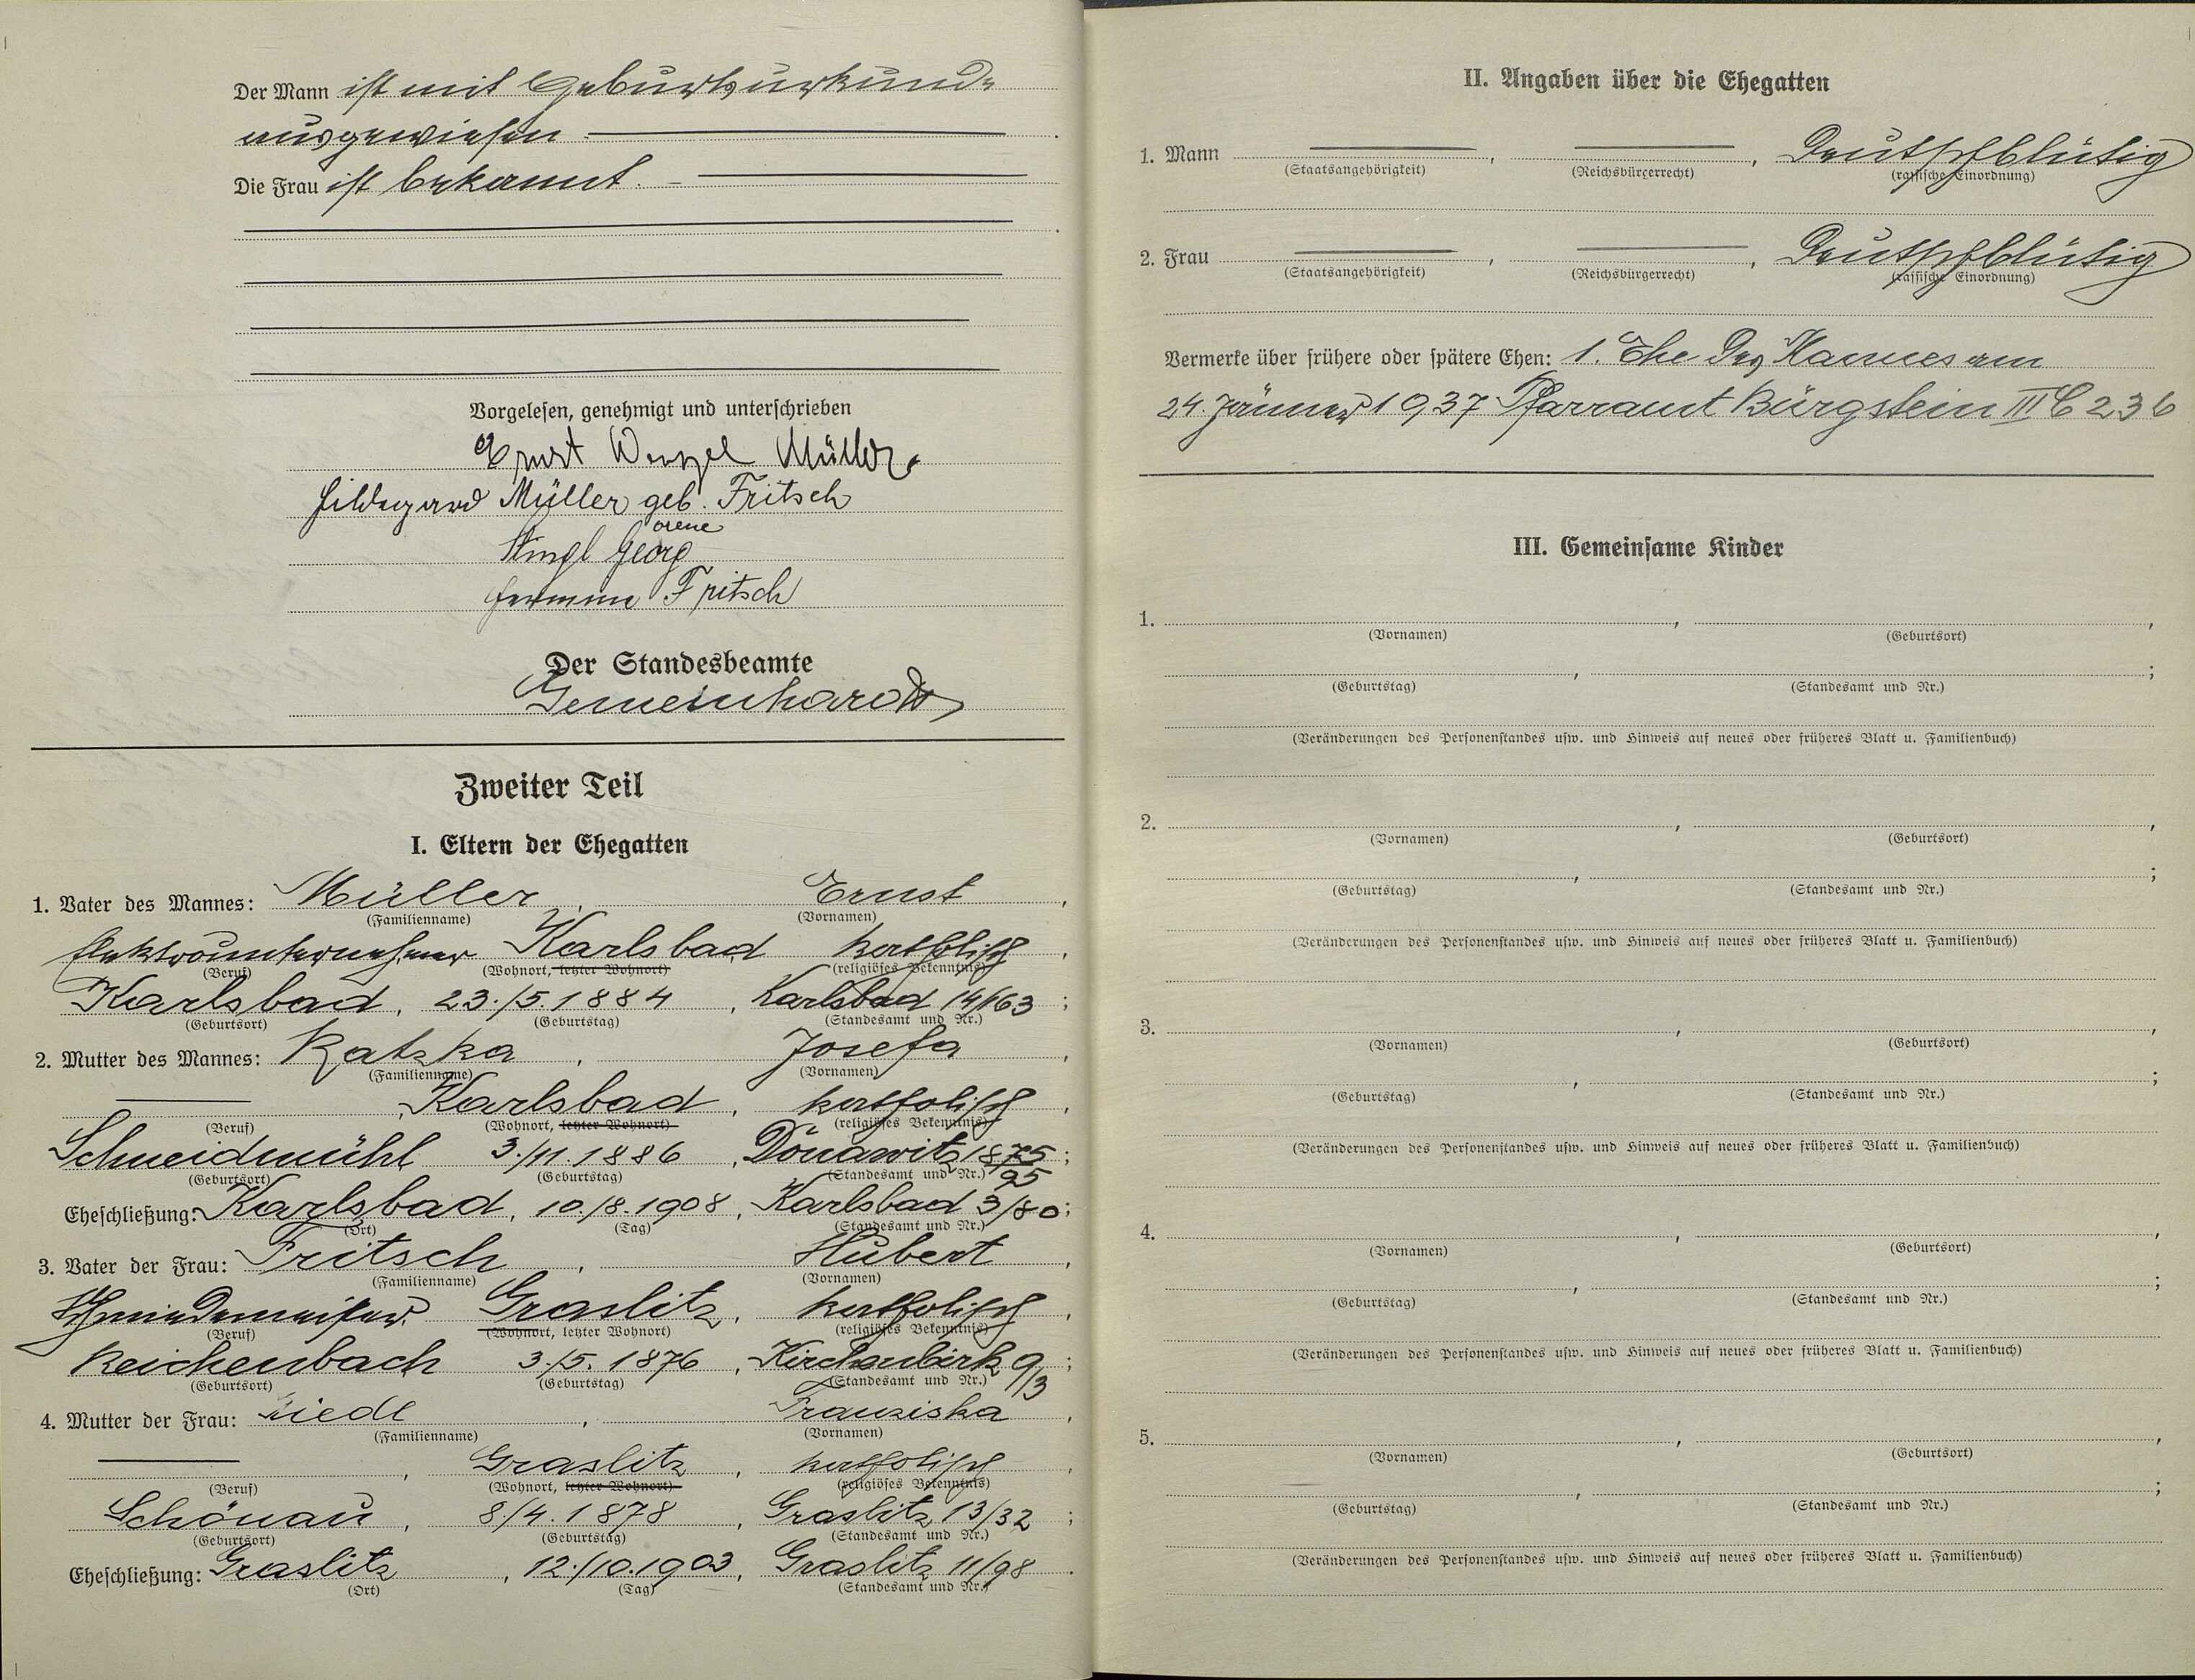 Der Mann ist mit Geburtsurkunde
ausgewiesen
Die Frau ist bekannt.
Vorgelesen, genehmigt und unterschrieben
Ernst Wenzel Müller.
Hildegard Müller geb. Fritsch
orene
Stingl Georg
Hermine Fritsch
Der Standesbeamte
Gemeinhardt
Zweiter Teil
I. Eltern der Ehegatten
1. Vater des Mannes: Müller, Ernst,
(Familienname) (Vornamen)
Elektrounternehmer Karlsbad katholisch,
(Beruf) (Wohnort, letzter Wohnort) (religiöses Bekenntnis)
Karlsbad, 23./5.1884, Karlsbad 14/163;
(Geburtsort) (Geburtstag) (Standesamt und Nr.)
2. Mutter des Mannes: Ratzka, Josefa,
(Familienname) (Vornamen)
Karlsbad, katholisch,
(Beruf) (Wohnort, letzter Wohnort) (religiöses Bekenntnis)
Schneidmühl 3./11.1886, Donawitz 1875/95;
(Geburtsort) (Geburtstag) (Standesamt und Nr.)
Eheschließung: Karlsbad, 10./8.1908, Karlsbad 3/80;
(Ort) (Tag) (Standesamt und Nr.)
3. Vater der Frau: Fritsch, Hubert,
(Familienname) (Vornamen)
Schmiedemeister Graslitz, katholisch,
(Beruf) (Wohnort, letzter Wohnort) (religiöses Bekenntnis)
Reichenbach 3./5. 1876, Kirchenbirk 9/3;
(Geburtsort) (Geburtstag) (Standesamt und Nr.)
4. Mutter der Frau: Riedl, Franziska,
(Familienname) (Vornamen)
, Graslitz, katholisch,
(Beruf) (Wohnort, letzter Wohnort) (religiöses Bekenntnis)
Schönau, 8./4.1878, Graslitz 13/32;
(Geburtsort) (Geburtstag) (Standesamt und Nr.)
Eheschließung: Graslitz, 12./10.1903, Graslitz 11/98.
(Ort) (Tag) (Standesamt und Nr.)
II. Angaben über die Ehegatten
1. Mann , , Deutschblütig
(Staatsangehörigkeit) (Reichsbürgerrecht) (rassische Einordnung)
2. Frau , , Deutschblütig
(Staatsangehörigkeit) (Reichsbürgerrecht) (rassische Einordnung)
Vermerke über frühere oder spätere Ehen: 1. Ehe des Mannes am
24. Jänner 1937 Pfarramt Bürgstein III C 236
III. Gemeinsame Kinder
1. , ,
(Vornamen) (Geburtsort)
, ;
(Geburtstag) (Standesamt und Nr.)
(Veränderungen des Personenstandes usw. und Hinweis auf neues oder früheres Blatt u. Familienbuch)
2. , ,
(Vornamen) (Geburtsort)
, ;
(Geburtstag) (Standesamt und Nr.)
(Veränderungen des Personenstandes usw. und Hinweis auf neues oder früheres Blatt u. Familienbuch)
3. , ,
(Vornamen) (Geburtsort)
, ;
(Geburtstag) (Standesamt und Nr.)
(Veränderungen des Personenstandes usw. und Hinweis auf neues oder früheres Blatt u. Familienbuch)
4. , ,
(Vornamen) (Geburtsort)
, ;
(Geburtstag) (Standesamt und Nr.)
(Veränderungen des Personenstandes usw. und Hinweis auf neues oder früheres Blatt u. Familienbuch)
5. , ,
(Vornamen) (Geburtsort)
, ;
(Geburtstag) (Standesamt und Nr.)
(Veränderungen des Personenstandes usw. und Hinweis auf neues oder früheres Blatt u. Familienbuch)